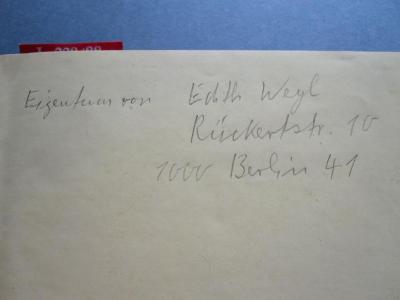 Eigentum von Edith Weyl
Rückertstr. 10
1000 Berlin 41